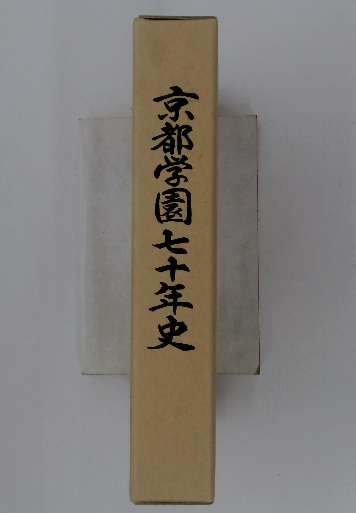 京都学園七十年史